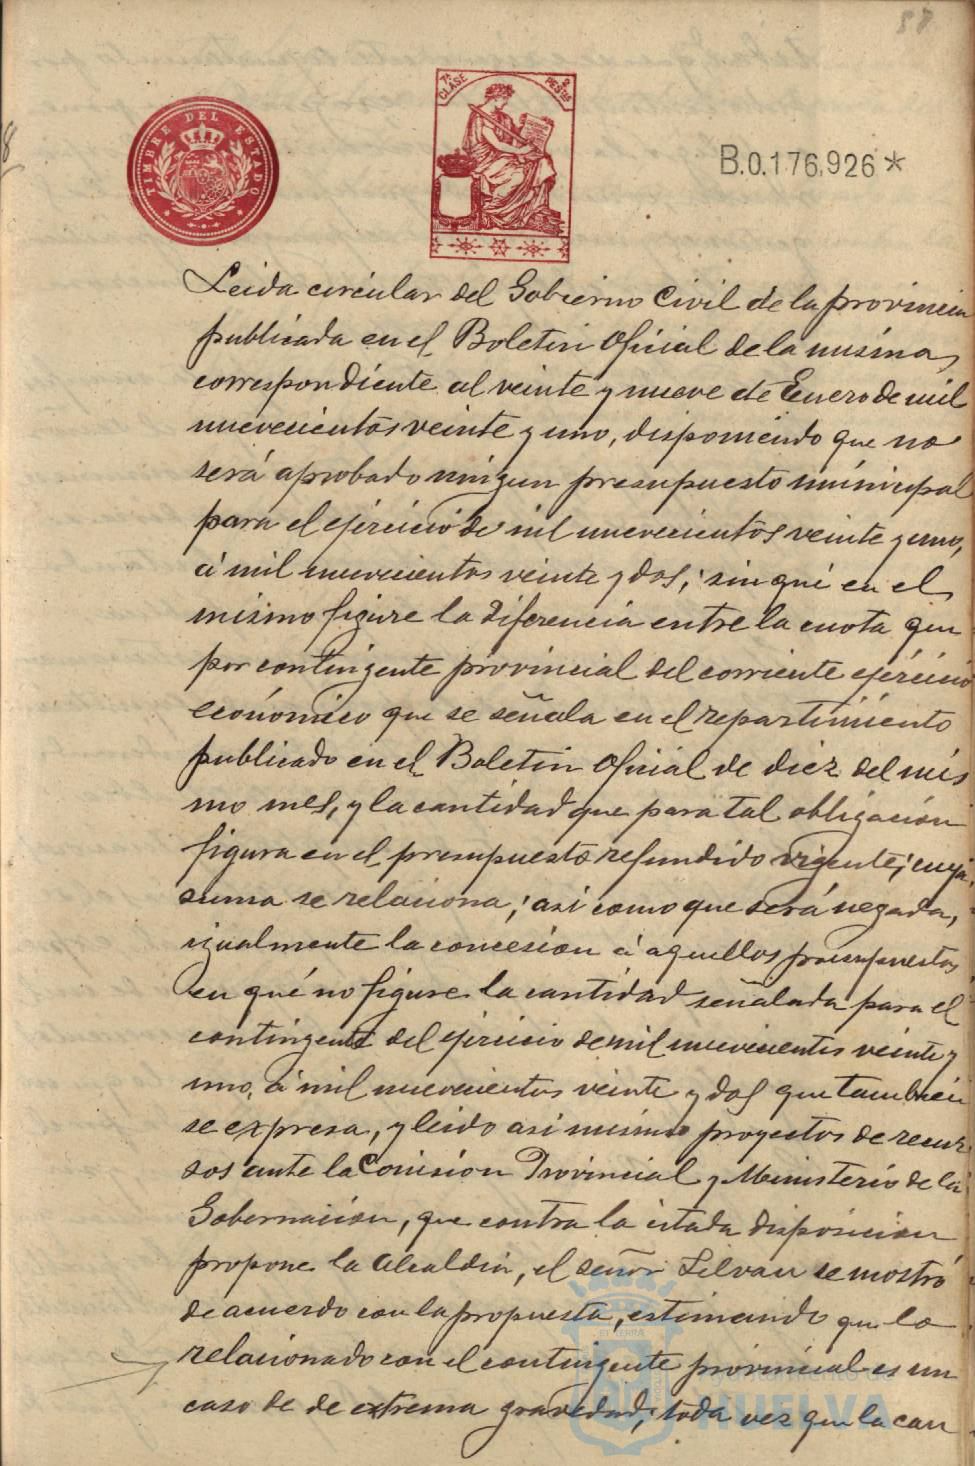 88
TIMBRE DEL ESTADO
7ª CLASE
2 PESTAS
B.0.176,926*
Leida circular del Gobierno Civil de la provincia
publicada en el Boletin Oficial de la misma,
correspondiente al veinte y nueve de Enero de mil
nuevecientos veinte y uno, disponiendo que no
será aprobado ningun presupuesto municipal
para el ejercicio de mil nuevecientos veinte y uno,
á mil nuevecientos veinte y dos; sin qué en el
mismo figure la diferencia entre la cuota que
por contingente provincial del corriente ejercicio
económico que se señala en el repartimiento
publicado en el Boletin Oficial de diez del mis
mo mes, y la cantidad que para tal obligación
figura en el presupuesto refundido vigente; cuya
suma se relaciona; asi como que será negada,
igualmente la concesion á aquellos presupuestos
en qué no figure la cantidad señalada para el
contingente del ejercicio de mil nuevecientos veinte y
uno, á mil nuevecientos veinte y dos que tambien
se expresa, y leido asi mismo proyectos de recur
sos ante la Comision Provincial y Ministerio de la
Gobernación, que contra la citada disposicion
propone la Alcaldia, el señor Silvan se mostró
de acuerdo con la propuesta, estimando que lo
relacionado con el contingente provincial es un
caso de de extrema gravedad, toda vez que la can
Ayuntamiento de
HUELVA